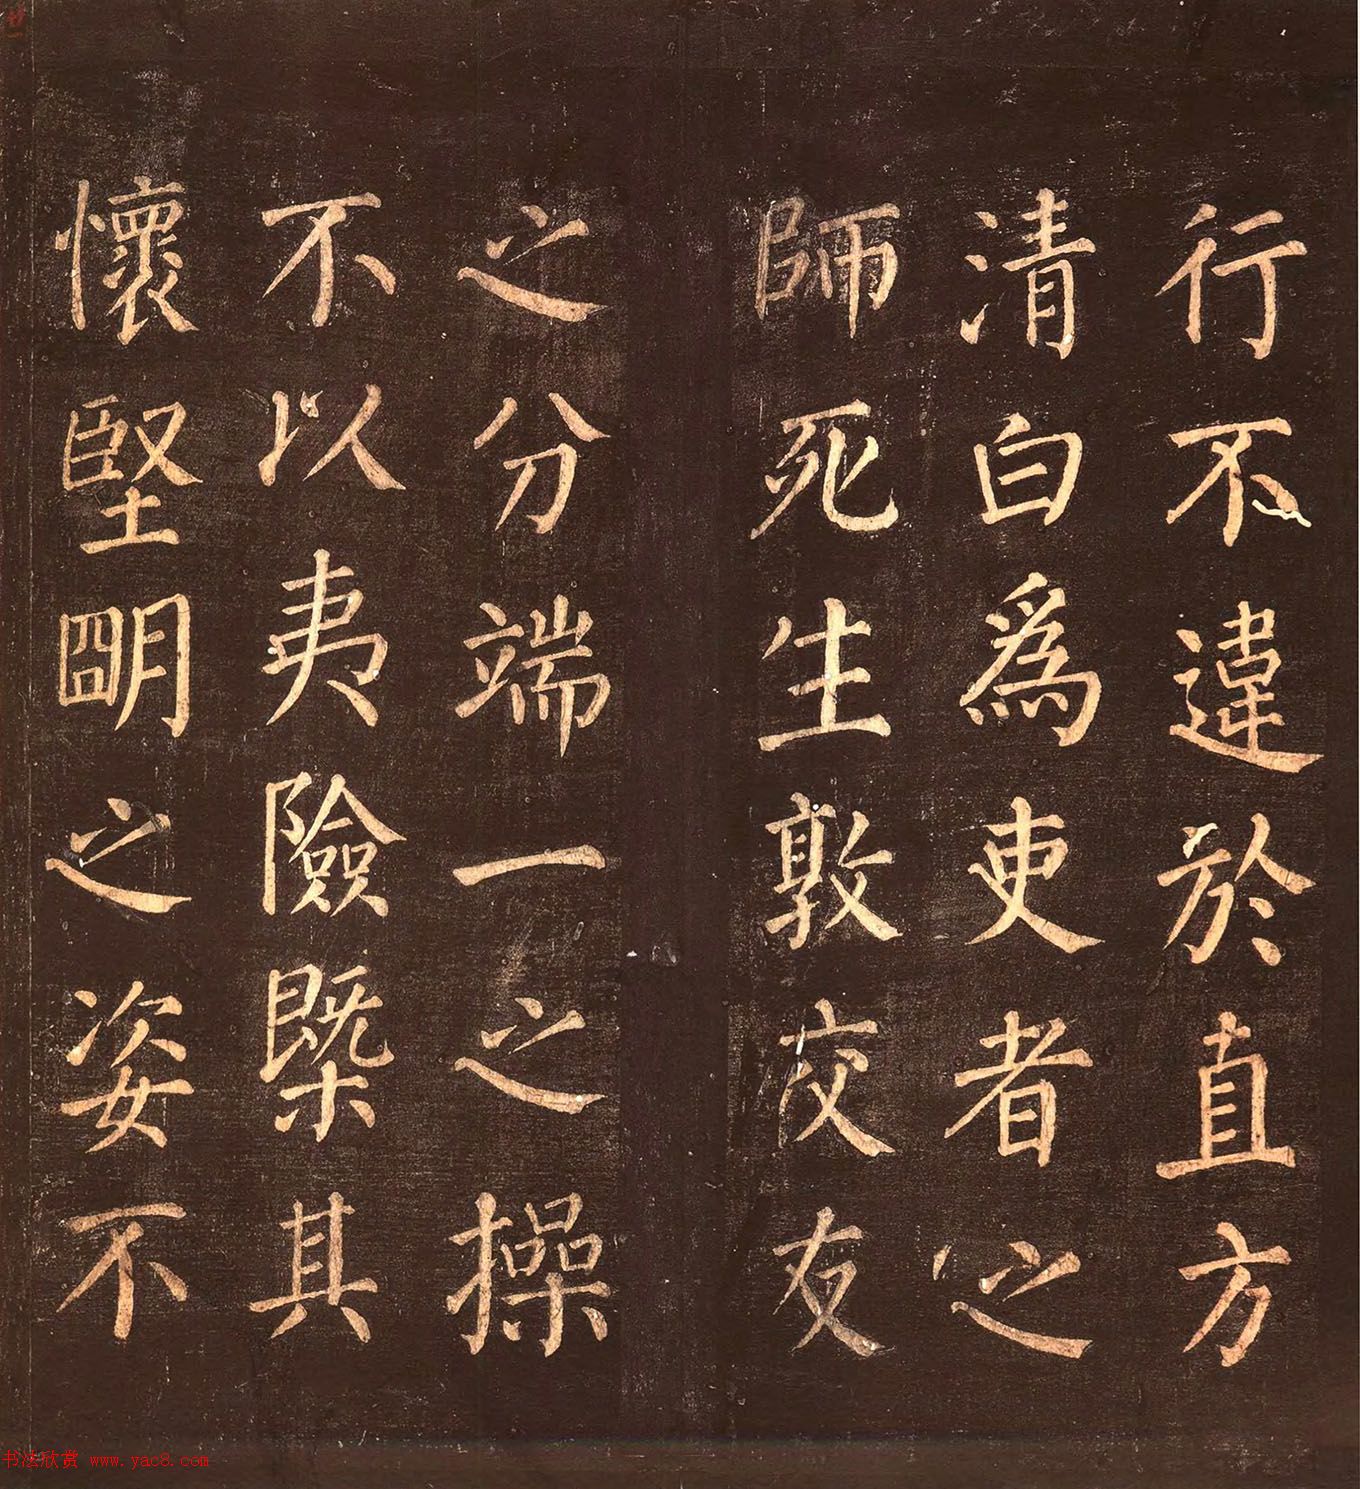 行不違於直方
清白為吏者之
師死生敦交友
之分端一之操
不以夷險槩其
懷堅朙之姿不
书法欣赏 www.yac8.com